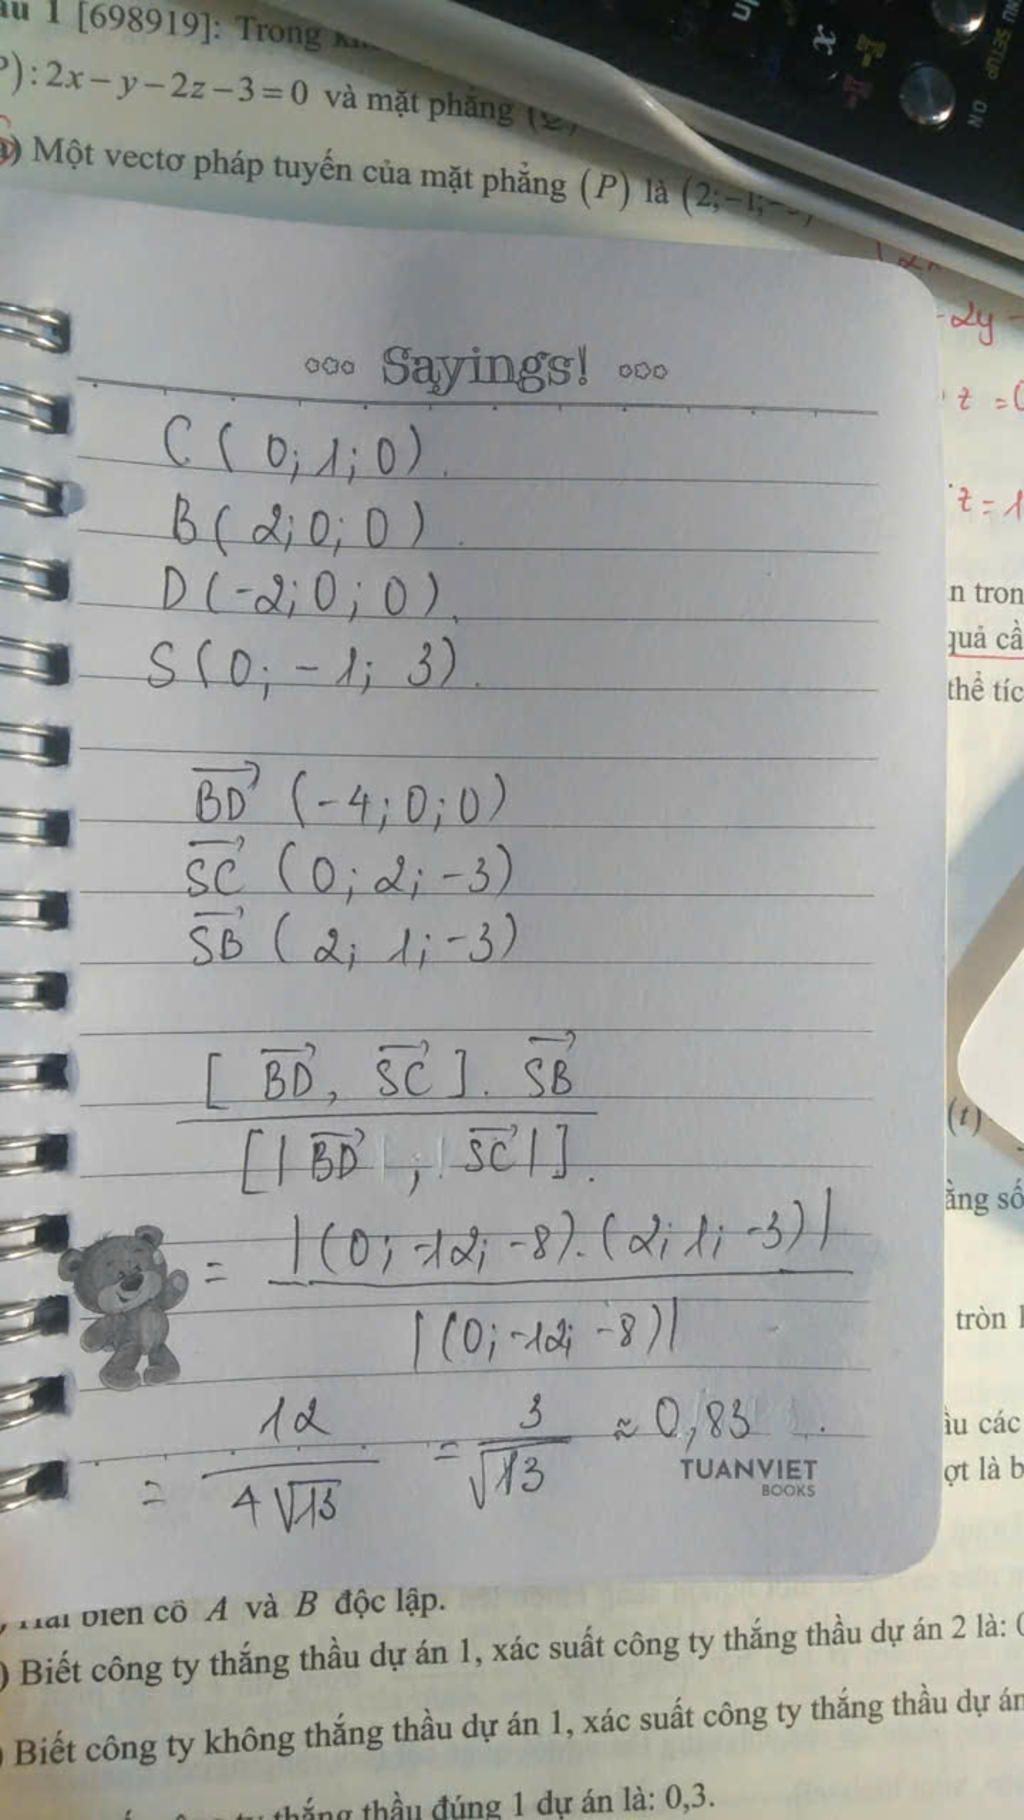 [698919]: Trong
: 2x − y − 2z − 3 = 0 và mặt phẳng
Một vectơ pháp tuyến của mặt phẳng (P) là (2;−1;
ln
x
SETUP
ON
Sayings!
C ( 0; 1; 0).
B ( 2; 0; 0).
D (-2; 0; 0).
S (0; -1; 3).
BD→ (-4; 0; 0)
SC→ (0; 2; -3)
SB→ (2; 1; -3)
[ BD→, SC→ ]. SB→
[| BD→ ; SC→ |].
= |(0; -12; -8).(2; 1; -3)|
|(0; -12; -8)|
= 12/4√13 = 3/√13 ≈ 0,83
TUANVIET
BOOKS
-2y -
z =
z = 1
quả cầ
thể tíc
(t)
ằng số
tròn
các
là b
A và B độc lập.
) Biết công ty thắng thầu dự án 1, xác suất công ty thắng thầu dự án 2 là:
Biết công ty không thắng thầu dự án 1, xác suất công ty thắng thầu dự án
thắng thầu đúng 1 dự án là: 0,3.